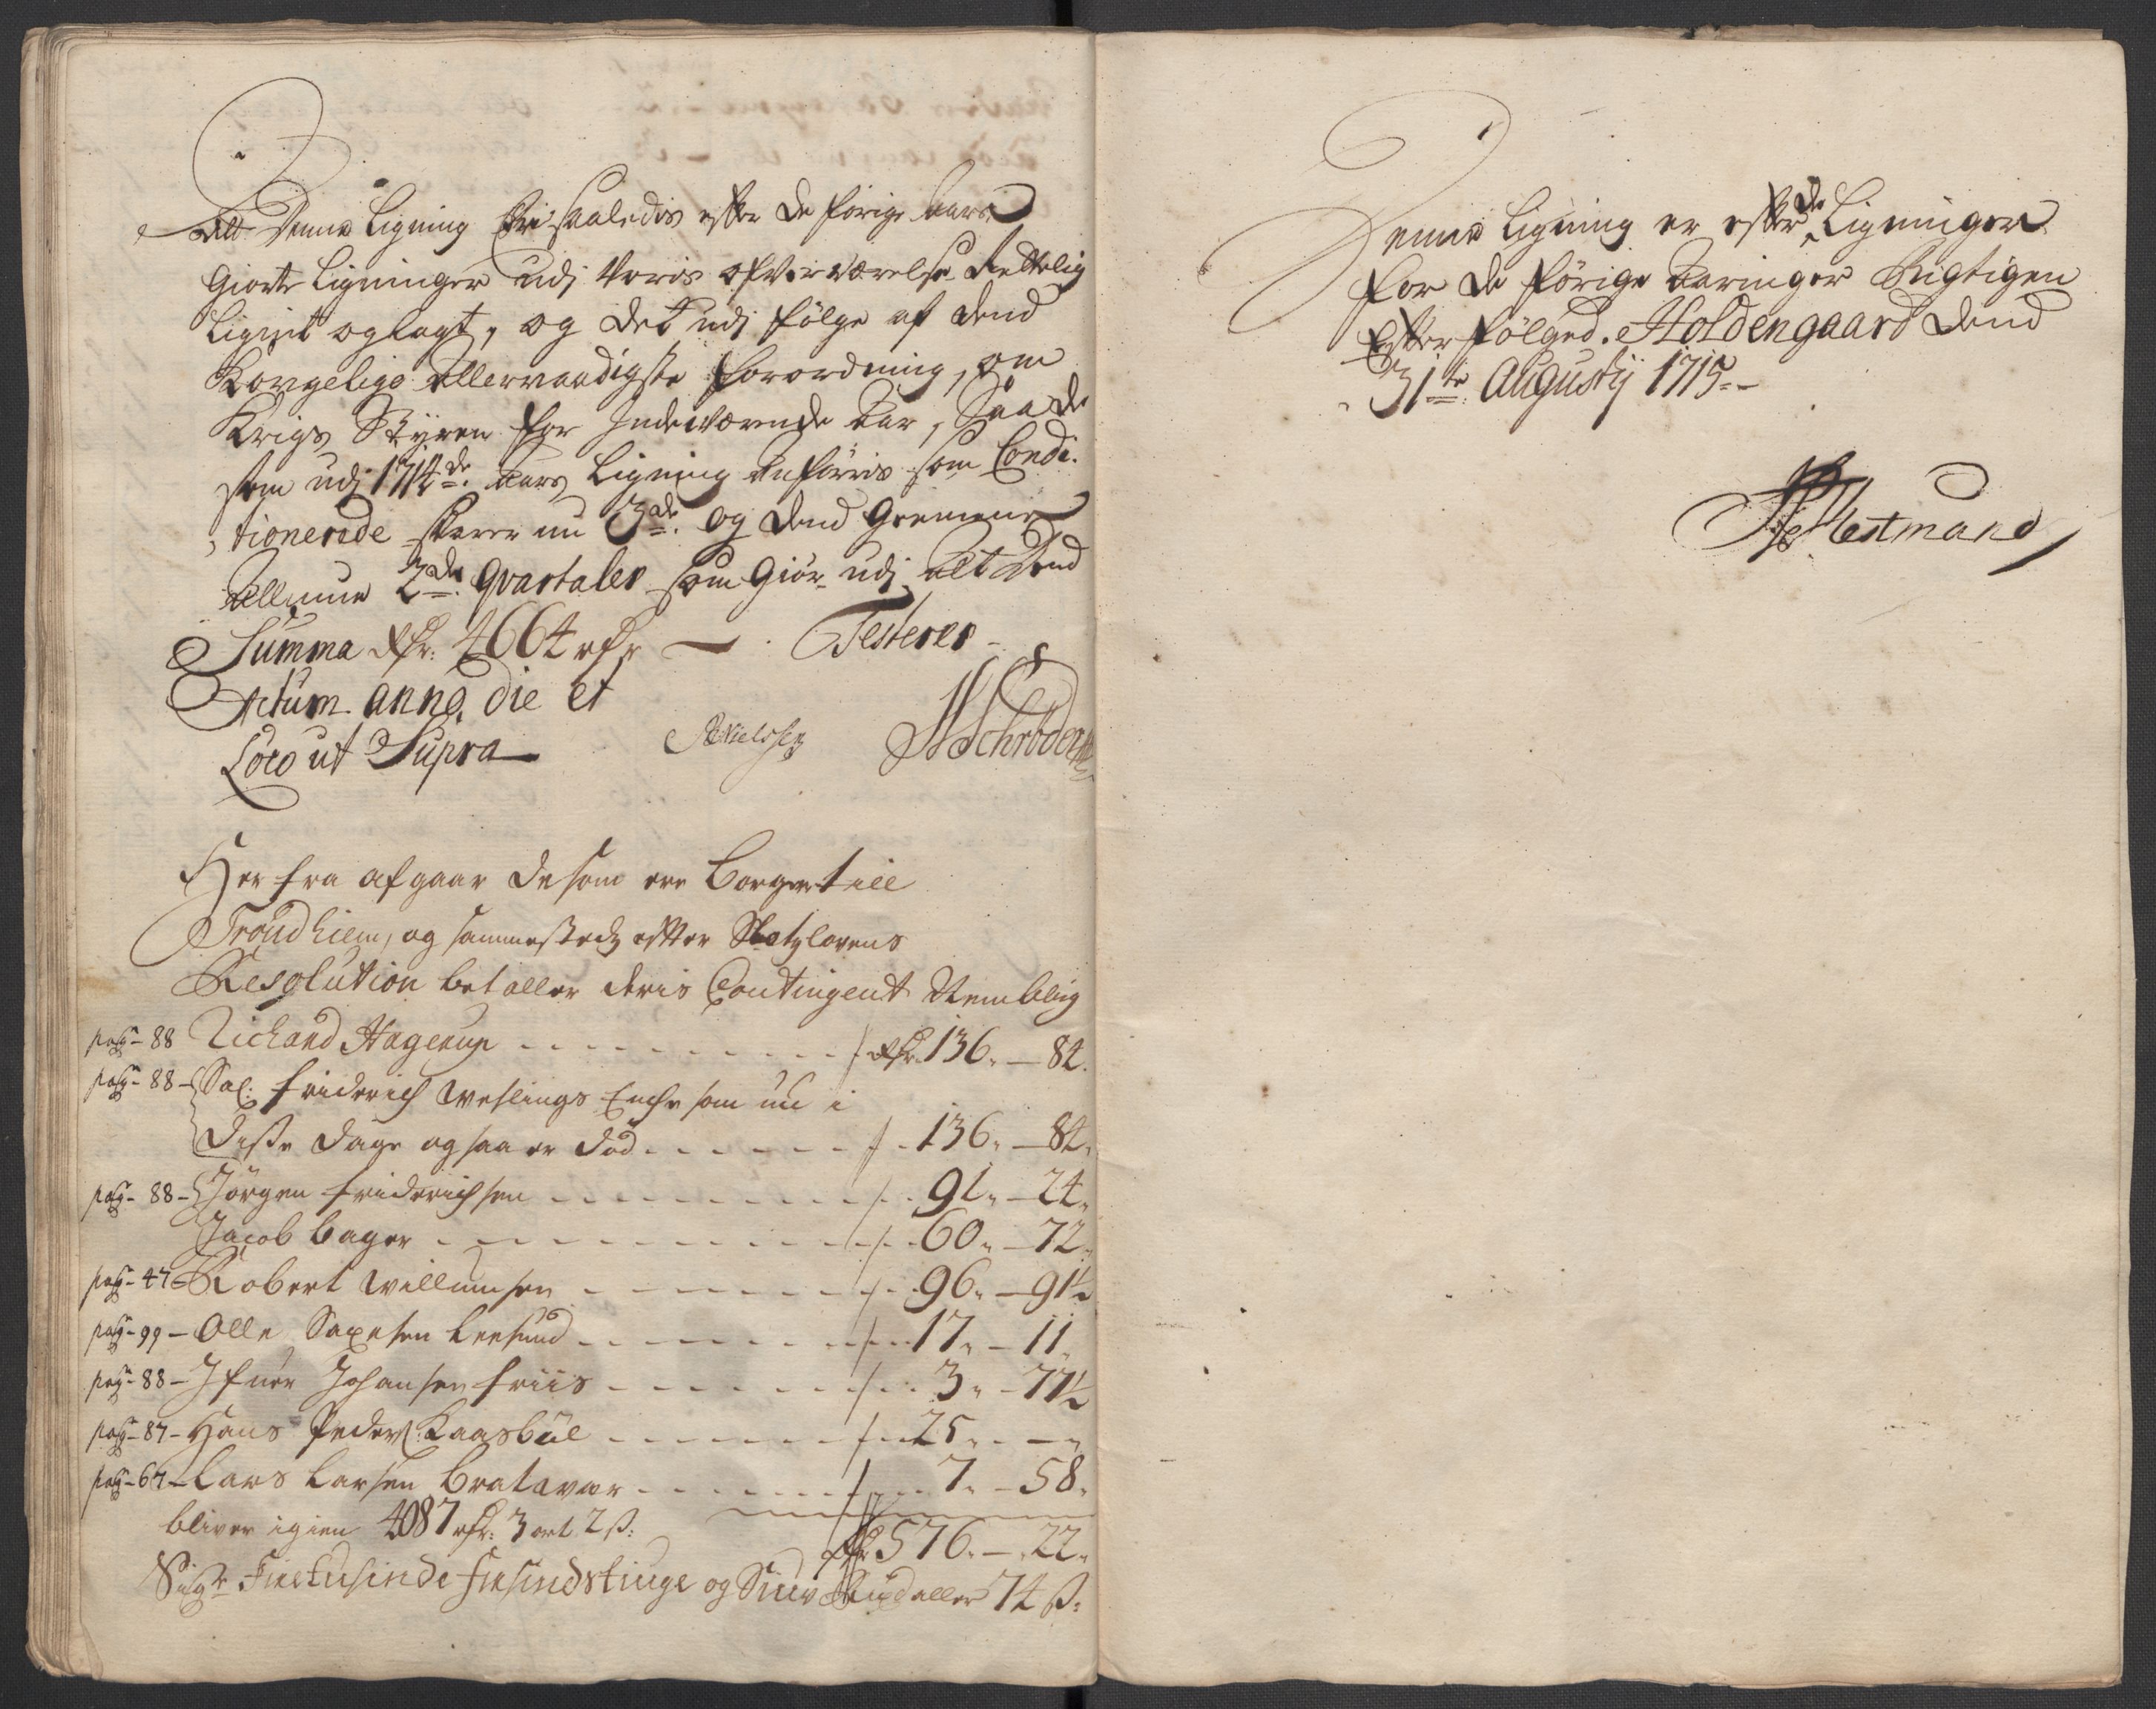 Att Denne Ligning Er saaledis efter de forige Aars
Giorte Ligninger udj Voris ofverværelse Rettelig
Lignet og lagt, og det udj følge af dend
Kongelige Allernaadigste forordning, om
Krigs Styren for Indeværende Aar, Saa de
som udj 1714de Aars Ligning Anføris som Condi-
tionerede svarer nu 3de og dend Gemeene
Allmue 2de Qvartaler som Giør udj alt Dend
Summa Rdr: 4664 rdr — . Testerer
Actum anno, die et
Loco ut Supra
Nielssen HSchrøder
Her fra afgaar de som ere borger till
Trondhiem, og sammestedz efter Slotzlovens
Resolution betaller deris Contingent Nemblig
pag- 88 Richard Hagerup - - - Rdr 136 - 84.
pag- 88 - Sal: Friderich Weslings Enche som nu i
disse dage og saa er død - - - 136 - 84.
pag- 88 - Jørgen Friderichsen - - - 91 - 24
Jacob Bager - - - 60 - 72
pag- 47 - Robert Willumsen - - - 96 - 91½
pag- 99 - Olle Saxesen Leesund - - - 17 - 11
pag- 88 - Ifuer Johansen Friis - - - 3 - 77½
pag- 87 - Hans Peders Kaasbøl - - - 25 - -
pag- 67 - Lars Larsen Bratavær - - - 7 - 58
bliver igien 4087 rdr: 3 ort 2 s:
Rdr 576 - 22
Siger Firetusinde Firsindstiuge og Siuv Rixdaller 74 s:
Denne Ligning er efter de Ligninger
for de forige Aaringer Rigtigen
Efterfølged. Holdengaard Dend
31te Augustij 1715 -
Mestmand